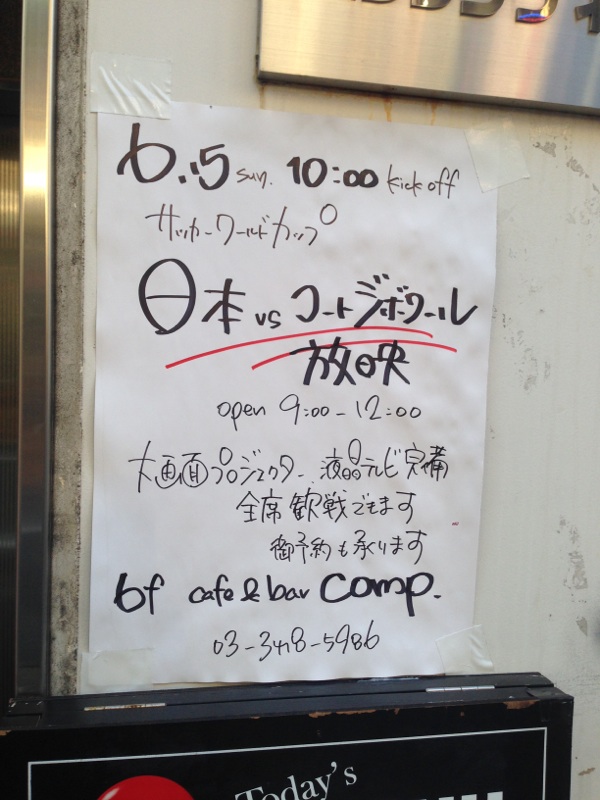 6.15 sun. 10:00 kick off
サッカーワールドカップ
日本 vs コートジボワール
放映
open 9:00-12:00
大画面プロジェクター 液晶テレビ完備
全席観戦できます
御予約も承ります
6f cafe & bar comp.
03-3418-5986
Today's